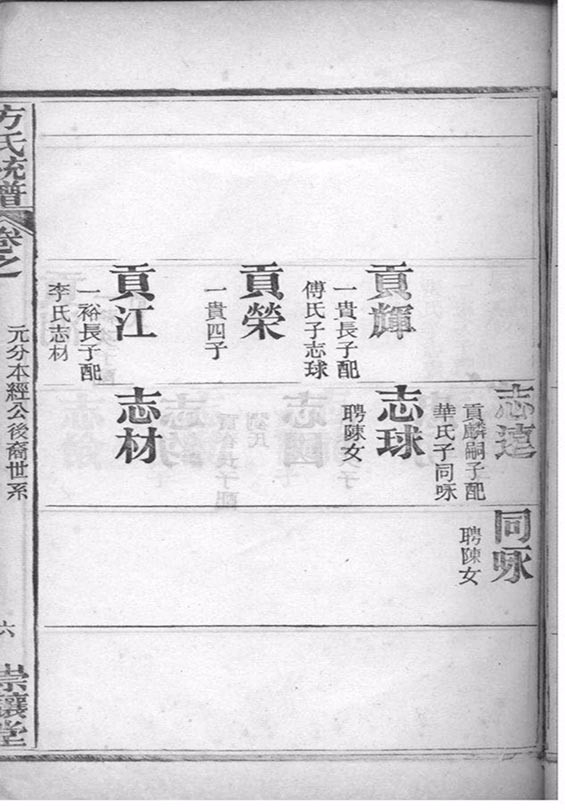 志達
貢麟嗣子配
華氏子同咏
同咏
聘陳女
貢輝
一貴長子配
傅氏子志球
志球
聘陳女
貢榮
一貴四子
貢江
一裕長子配
李氏志材
志材
方氏統譜
卷之
元分本經公後裔世系
六
崇讓堂